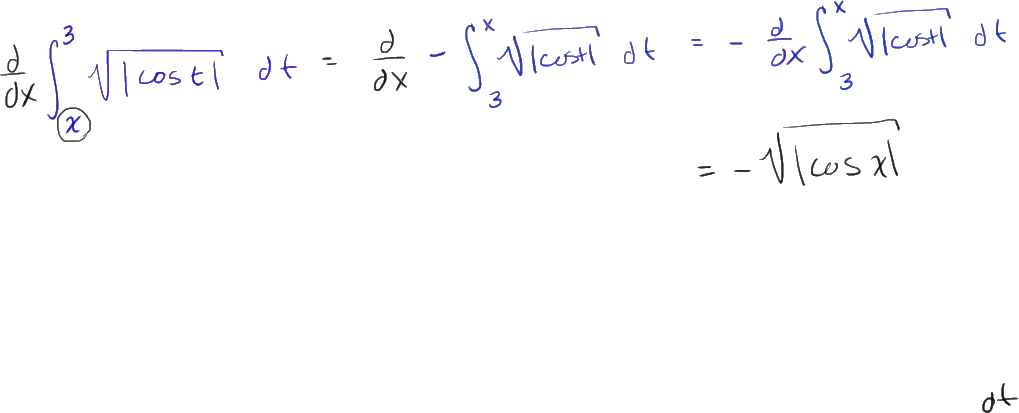 d/dx ∫_x^3 √|cos t| dt = d/dx - ∫_3^x √|cos t| dt = - d/dx ∫_3^x √|cos t| dt
= - √|cos x|
dt